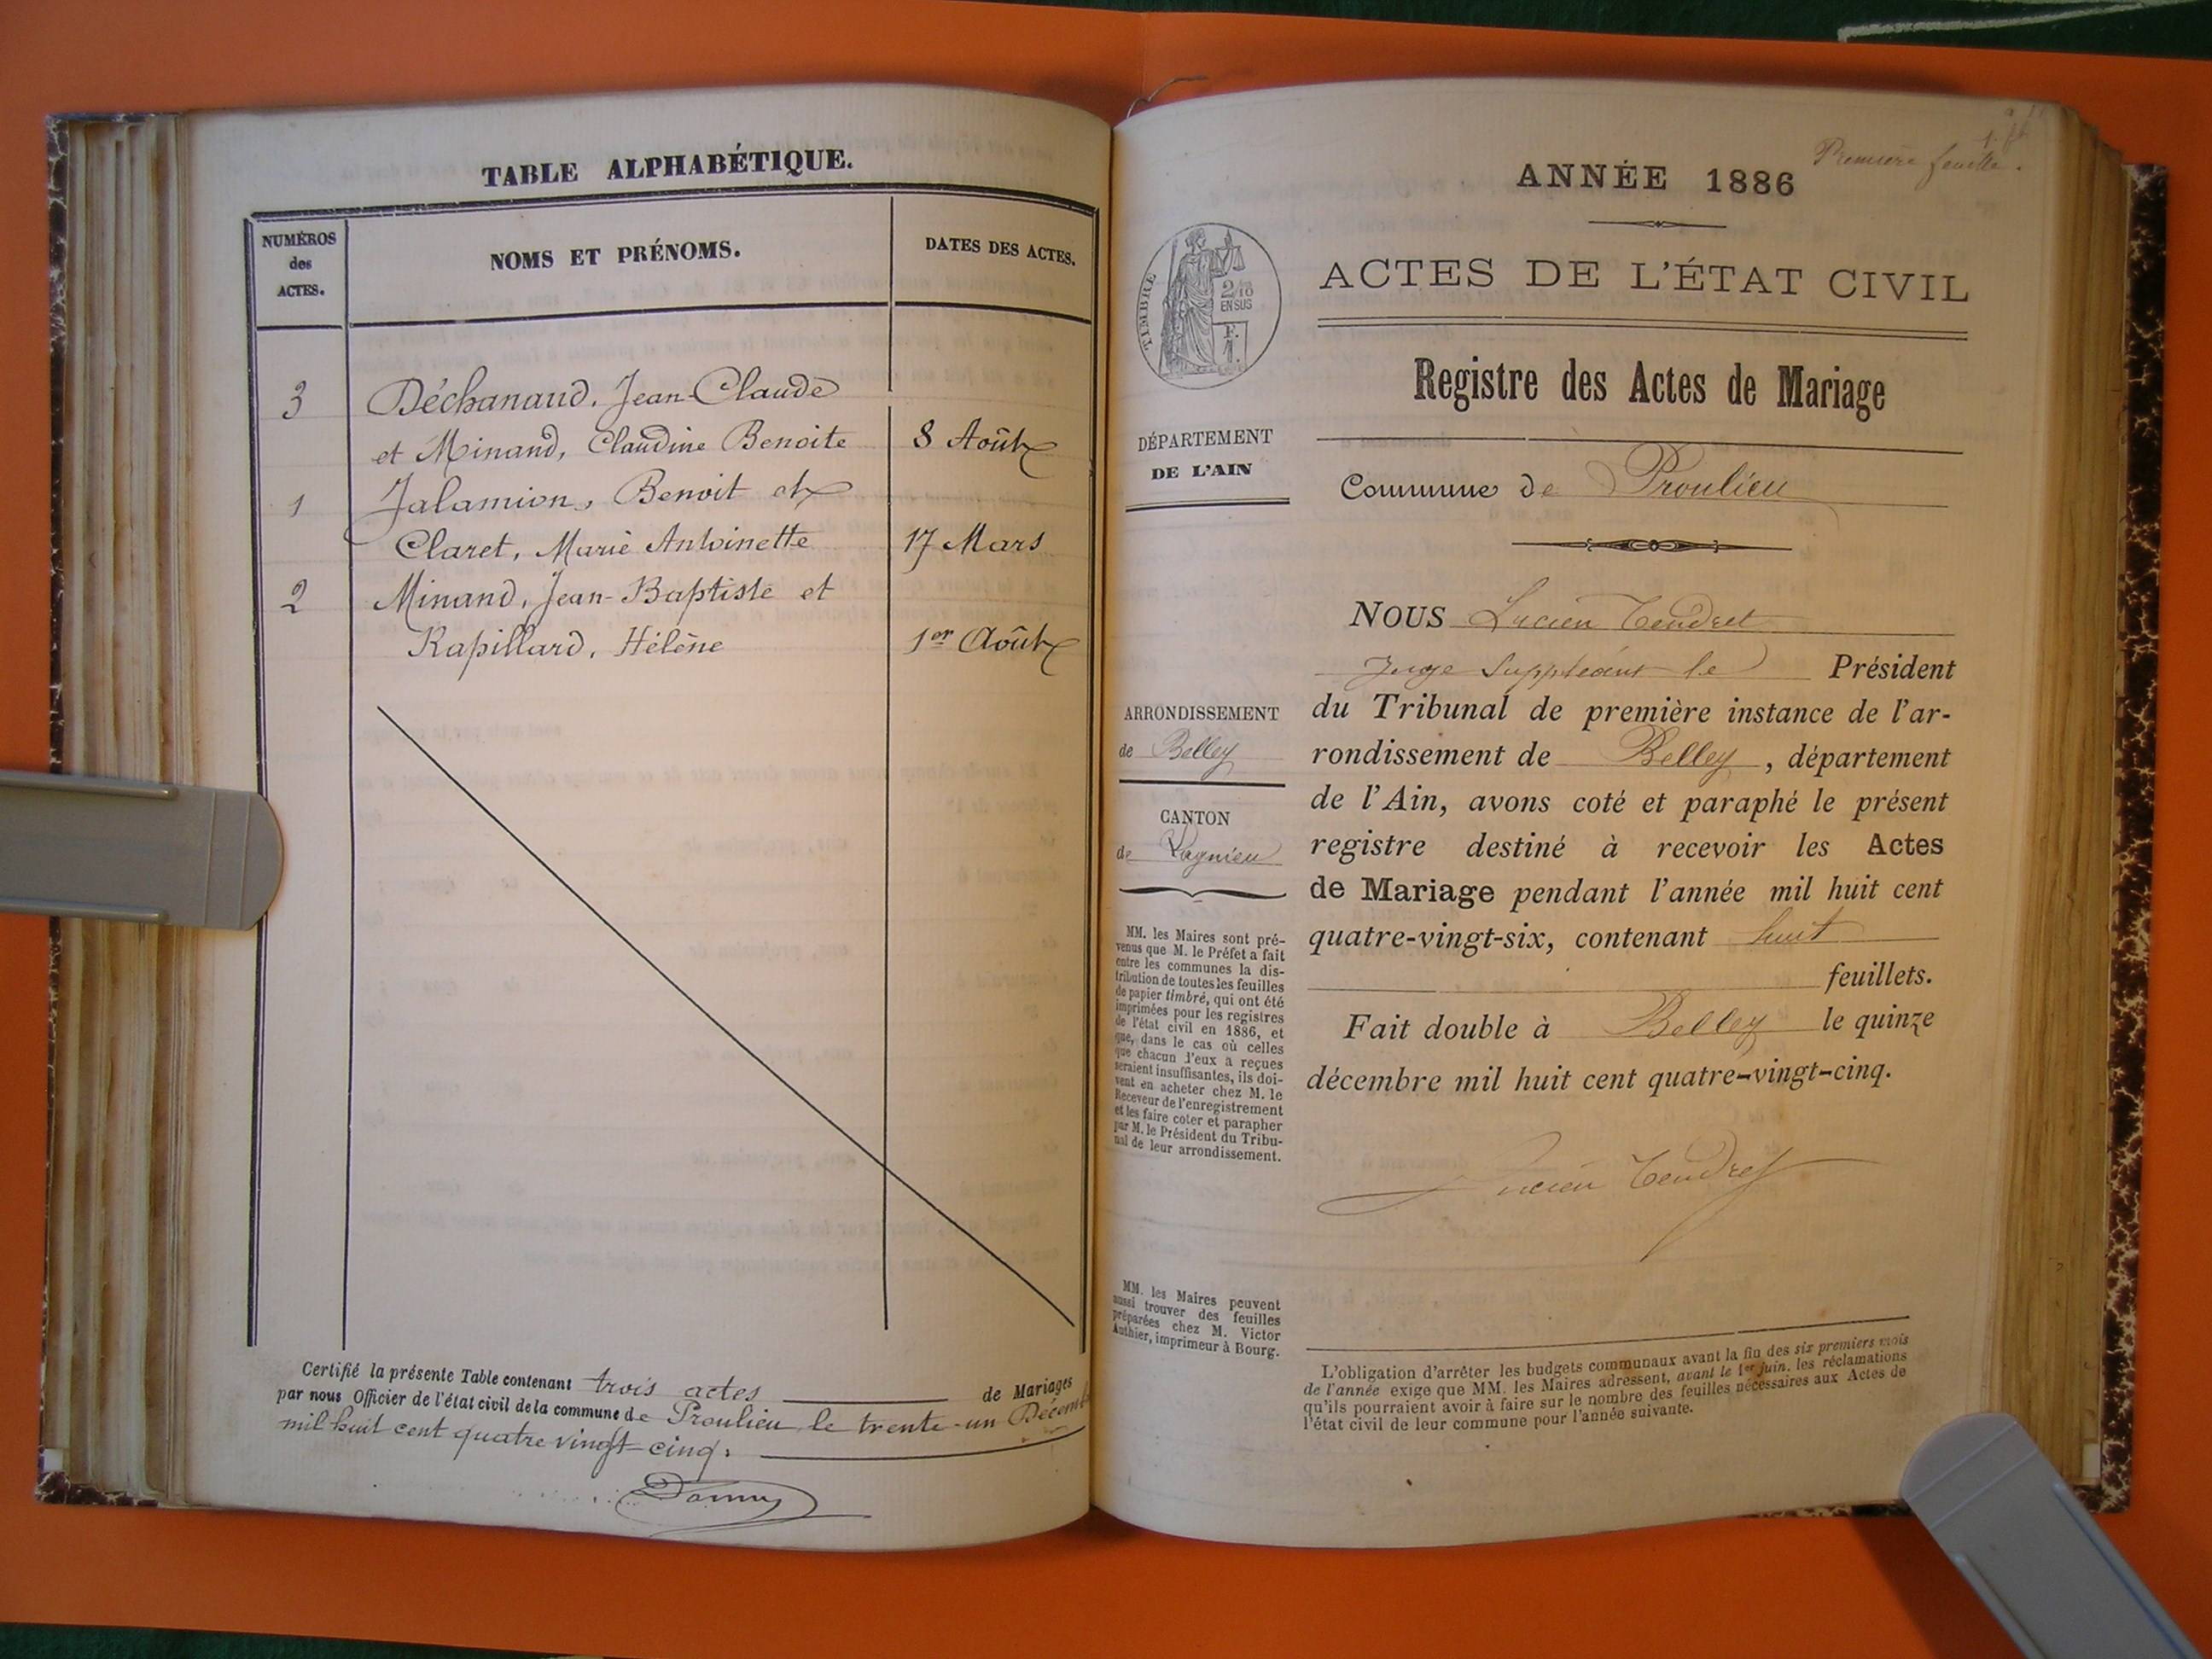 TABLE ALPHABÉTIQUE.
NUMÉROS
des
ACTES.
NOMS ET PRÉNOMS.
DATES DES ACTES.
3 Déchanaud, Jean-Claude
et Minand, Claudine Benoite 8 Août
1 Jalamion, Benoit et
Claret, Marie Antoinette 17 Mars
2 Minand, Jean-Baptiste et
Rapillard, Hélène 1er Août
Certifié la présente Table contenant trois actes de Mariages
par nous Officier de l'état civil de la commune de Proulieu le trente-un Décemb
mil huit cent quatre vingt-cinq.
Première feuille.
ANNÉE 1886
ACTES DE L'ÉTAT CIVIL
TIMBRE
2/10
EN SUS
Registre des Actes de Mariage
DÉPARTEMENT
DE L'AIN
Commune de Proulieu
NOUS Lucien Tendret
Juge Suppléant le Président
du Tribunal de première instance de l'ar-
rondissement de Belley, département
de l'Ain, avons coté et paraphé le présent
registre destiné à recevoir les Actes
de Mariage pendant l'année mil huit cent
quatre-vingt-six, contenant huit
feuillets.
Fait double à Belley le quinze
décembre mil huit cent quatre-vingt-cinq.
Lucien Tendret
ARRONDISSEMENT
de Belley
CANTON
de Lagnieu
MM. les Maires sont pré-
venus que M. le Préfet a fait
entre les communes la dis-
tribution de toutes les feuilles
de papier timbré, qui ont été
imprimées pour les registres
de l'état civil en 1886, et
que, dans le cas où celles
que chacun d'eux a reçues
seraient insuffisantes, ils doi-
vent en acheter chez M. le
Receveur de l'enregistrement
et les faire coter et parapher
par M. le Président du Tribu-
nal de leur arrondissement.
MM. les Maires peuvent
aussi trouver des feuilles
préparées chez M. Victor
Authier, imprimeur à Bourg.
L'obligation d'arrêter les budgets communaux avant la fin des six premiers mois
de l'année exige que MM. les Maires adressent, avant le 1er juin, les réclamations
qu'ils pourraient avoir à faire sur le nombre des feuilles nécessaires aux Actes de
l'état civil de leur commune pour l'année suivante.